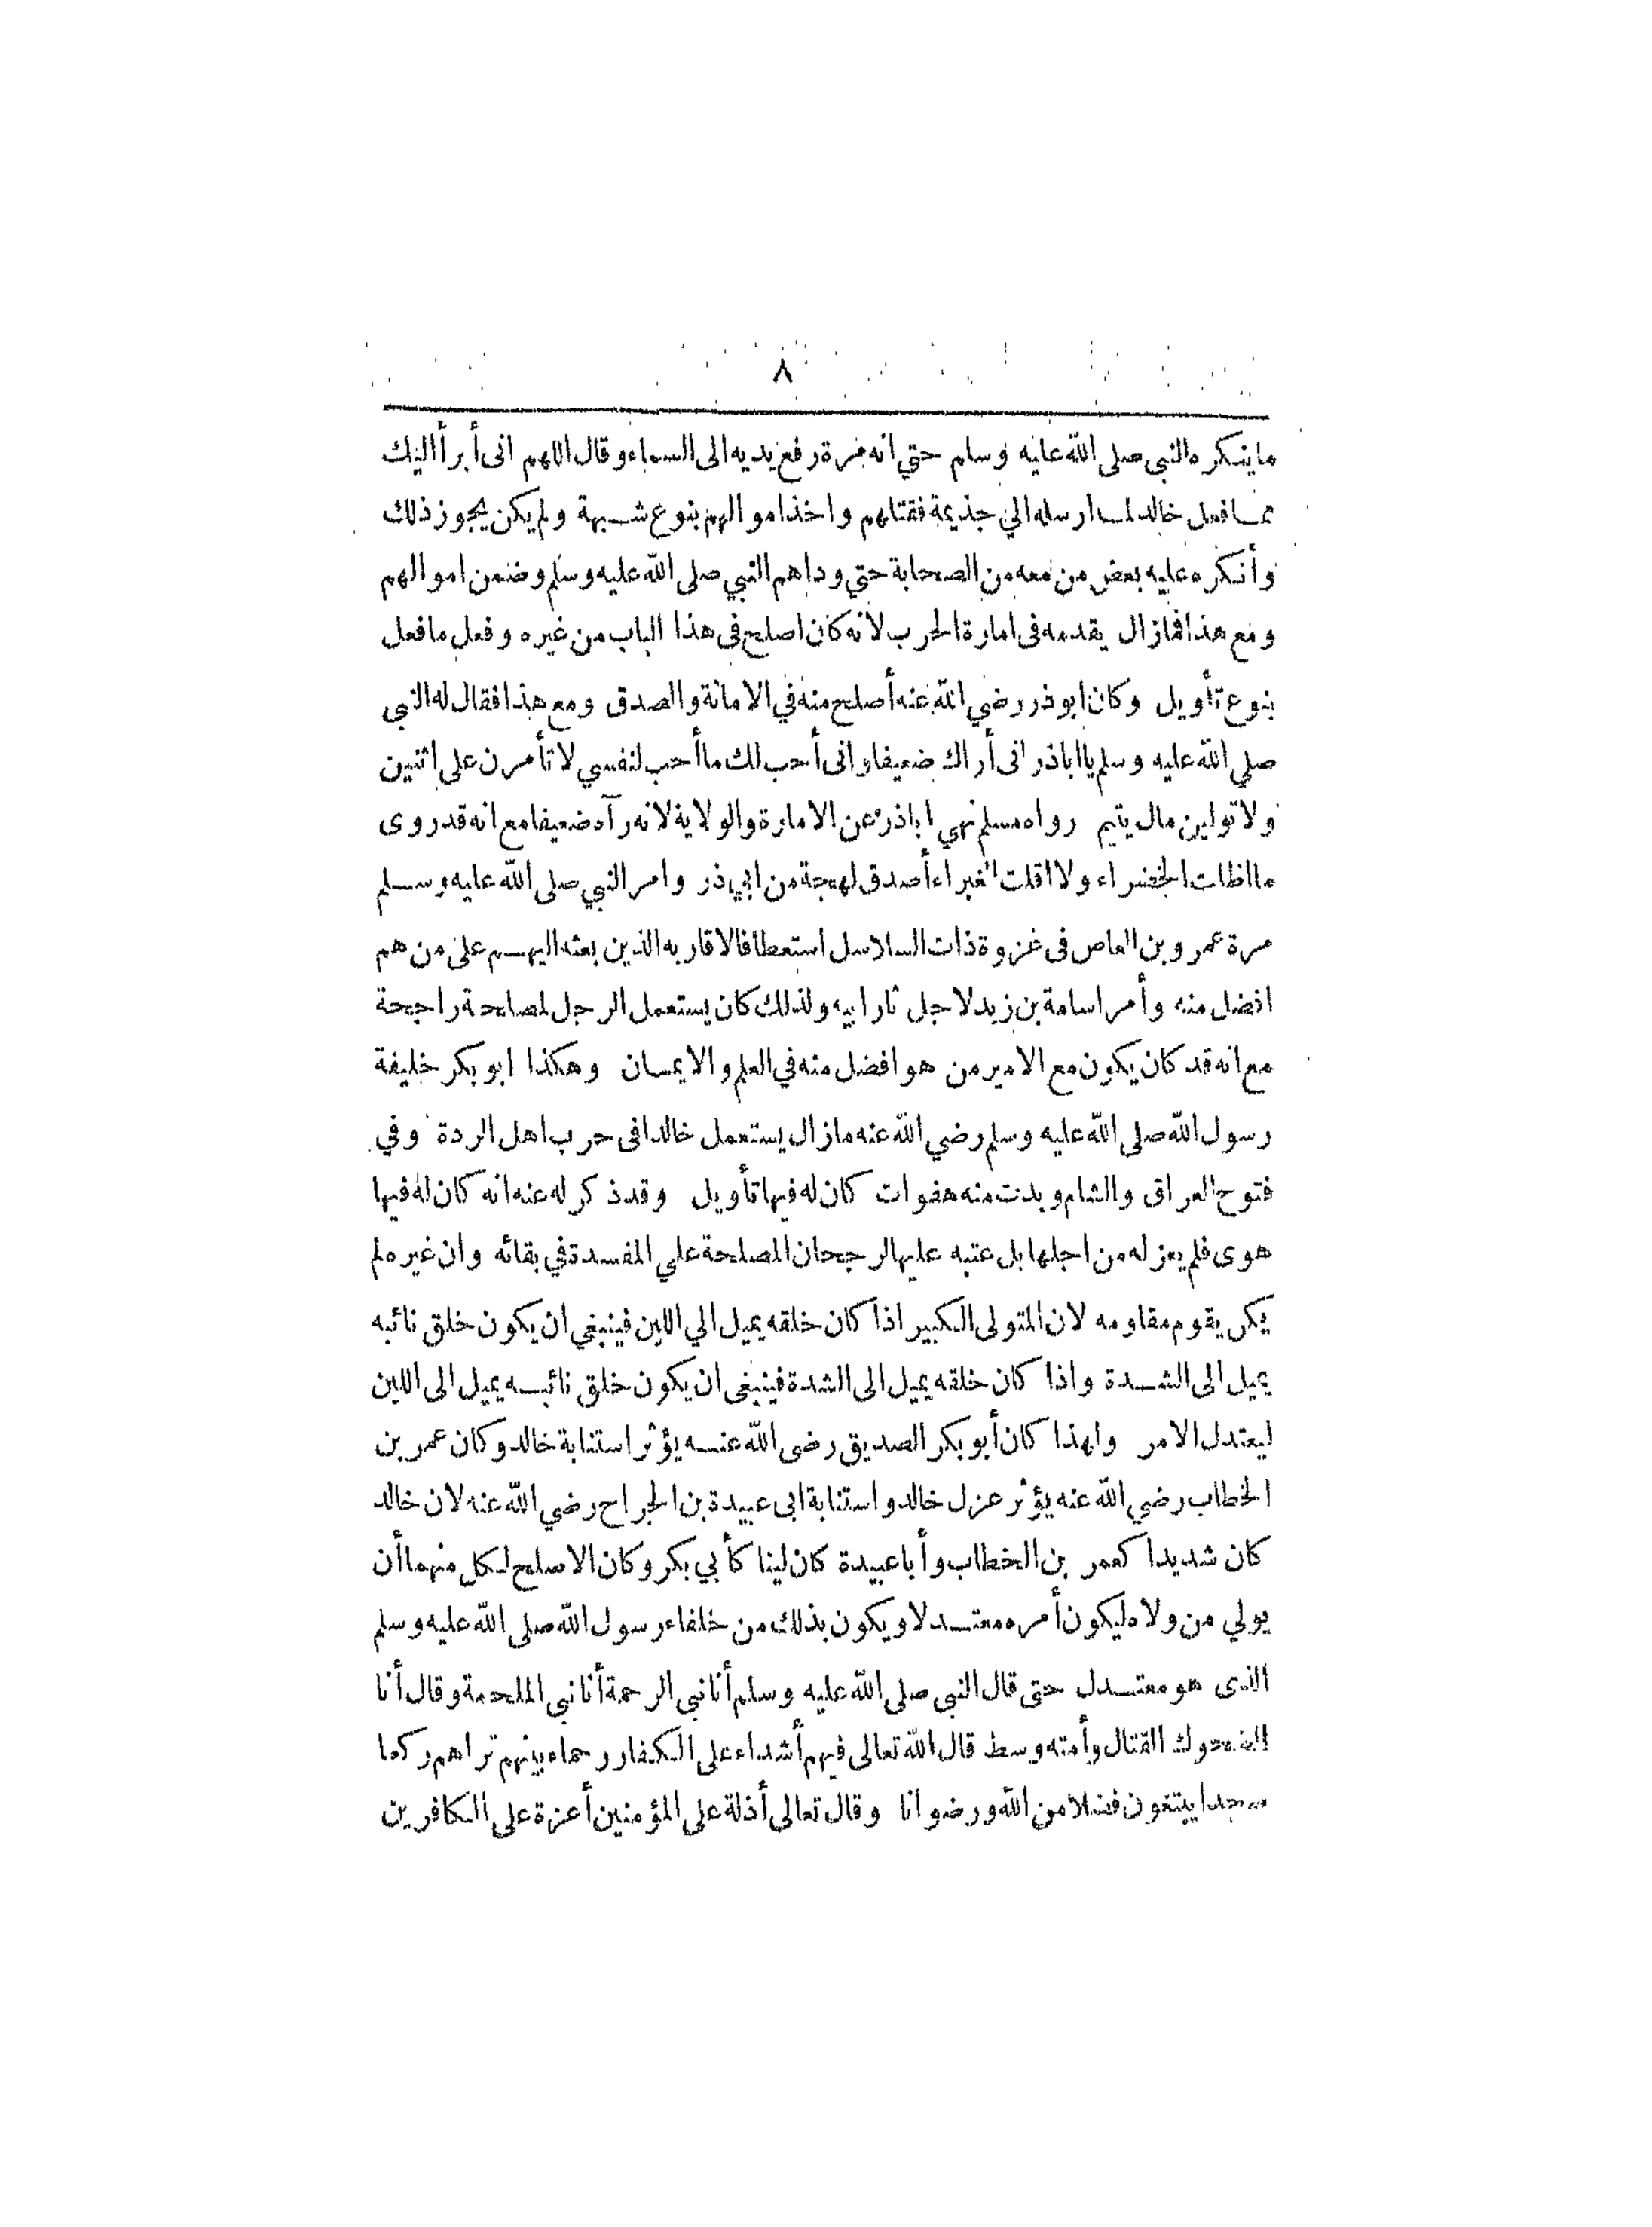 ٨
ما ينكره النبي صلى الله عليه وسلم حتي انه مرة رفع يديه الى السماء وقال اللهم انى أبرأ اليك
مما فعل خالد لما ارسله الي جذيمة فقتلهم واخذ اموالهم بنوع شبهة ولم يكن يجوز ذلك
وأنكره عليه بعض من معه من الصحابة حتي وداهم النبي صلى الله عليه وسلم وضمن اموالهم
ومع هذا فمازال يقدمه فى امارة الحرب لانه كان اصلح فى هذا الباب من غيره وفعل ما فعل
بنوع تأويل وكان ابو ذر رضي الله عنه أصلح منه في الامانة والصدق ومع هذا فقال له النبى
صلي الله عليه وسلم يا اباذر انى أراك ضعيفا وانى أحب لك ما أحب لنفسي لا تأمرن على اثنين
ولا تولين مال يتيم رواه مسلم نهي اباذر عن الامارة والولاية لانه رآه ضعيفا مع انه قد روى
ما اظلت الخضراء ولا اقلت الغبراء أصدق لهجة من ابي ذر وامر النبي صلى الله عليه وسلم
مرة عمرو بن العاص فى غزوة ذات السلاسل استعطافا لاقاربه الذين بعثه اليهم على من هم
افضل منه وأمر اسامة بن زيد لاجل ثار ابيه ولذلك كان يستعمل الرجل لمصلحة راجحة
مع انه قد كان يكون مع الامير من هو افضل منه في العلم والايمان وهكذا ابو بكر خليفة
رسول الله صلى الله عليه وسلم رضي الله عنه مازال يستعمل خالدا فى حرب اهل الردة وفي
فتوح العراق والشام وبدت منه هفوات كان له فيها تأويل وقد ذكر له عنه انه كان له فيها
هوى فلم يعزله من اجلها بل عتبه عليها لرجحان المصلحة علي المفسدة في بقائه وان غيره لم
يكن يقوم مقامه لان المتولى الكبير اذا كان خلقه يميل الي اللين فينبغي ان يكون خلق نائبه
يميل الى الشدة واذا كان خلقه يميل الى الشدة فينبغى ان يكون خلق نائبه يميل الى اللين
ليعتدل الامر ولهذا كان أبو بكر الصديق رضى الله عنه يؤثر استنابة خالد وكان عمر بن
الخطاب رضي الله عنه يؤثر عزل خالد واستنابة ابى عبيدة بن الجراح رضي الله عنه لان خالد
كان شديدا كعمر بن الخطاب وأبا عبيدة كان لينا كأبي بكر وكان الاصلح لكل منهما أن
يولي من ولاه ليكون أمره معتدلا ويكون بذلك من خلفاء رسول الله صلى الله عليه وسلم
الذى هو معتدل حتى قال النبى صلى الله عليه وسلم أنا نبى الرحمة أنا نبى الملحمة وقال أنا
الضحوك القتال وأمته وسط قال الله تعالى فيهم أشداء على الكفار رحماء بينهم تراهم ركعا
سجدا يبتغون فضلا من الله ورضوانا وقال تعالى أذلة على المؤمنين أعزة على الكافرين